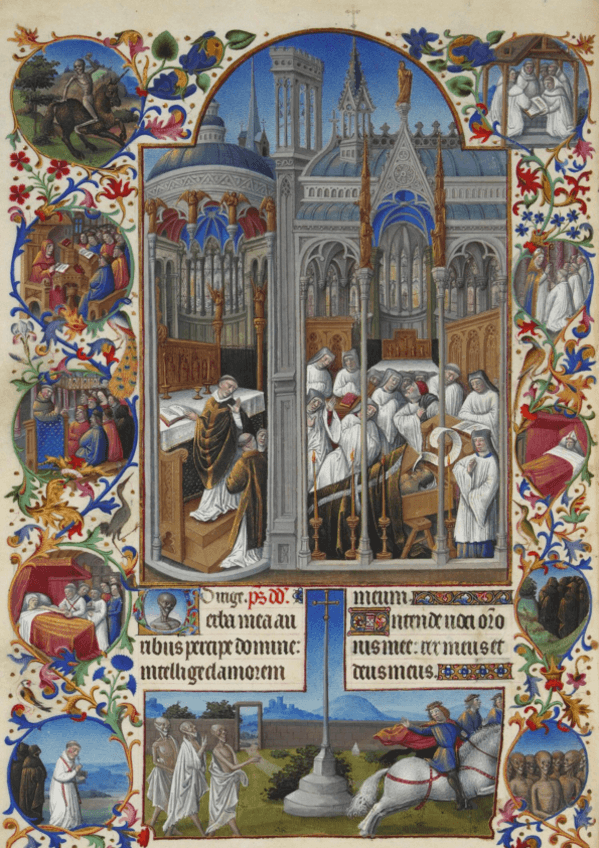 Dirige. ps. dd'.
Verba mea au
ribus percipe domine:
intellige clamorem
meum.
Intende uoci oro
nis mee: rex meus et
deus meus.